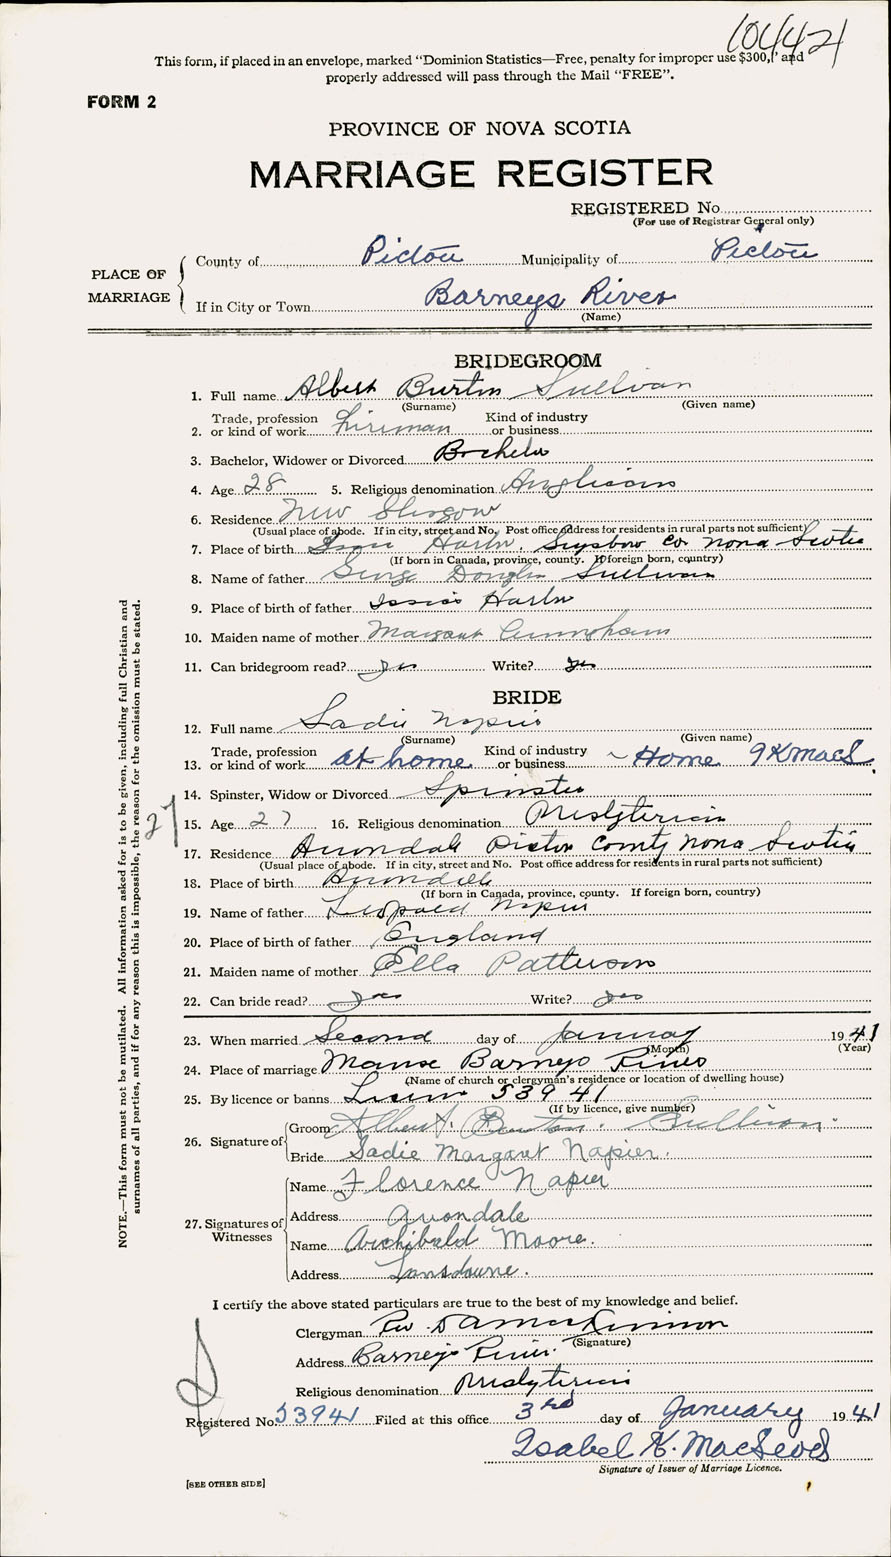 10442
This form, if placed in an envelope, marked "Dominion Statistics—Free, penalty for improper use $300," and
properly addressed will pass through the Mail "FREE".
FORM 2
PROVINCE OF NOVA SCOTIA
MARRIAGE REGISTER
REGISTERED No.
(For use of Registrar General only)
PLACE OF MARRIAGE
County of Pictou Municipality of Pictou
If in City or Town Barneys River
(Name)
BRIDEGROOM
1. Full name Albert Burton Sullivan
(Surname) (Given name)
2. Trade, profession or kind of work Fireman Kind of industry or business
3. Bachelor, Widower or Divorced Bachelor
4. Age 28 5. Religious denomination Anglican
6. Residence New Glasgow
(Usual place of abode. If in city, street and No. Post office address for residents in rural parts not sufficient)
7. Place of birth Harbor, Guysboro Co Nova Scotia
(If born in Canada, province, county. If foreign born, country)
8. Name of father George Douglas Sullivan
9. Place of birth of father Harbor
10. Maiden name of mother Margaret Cunningham
11. Can bridegroom read? yes Write? yes
BRIDE
12. Full name Sadie Napier
(Surname) (Given name)
13. Trade, profession or kind of work at home Kind of industry or business Home IKMacL.
14. Spinster, Widow or Divorced Spinster
27
15. Age 27 16. Religious denomination Presbyterian
17. Residence Avondale Pictou County Nova Scotia
(Usual place of abode. If in city, street and No. Post office address for residents in rural parts not sufficient)
18. Place of birth Avondale
(If born in Canada, province, county. If foreign born, country)
19. Name of father Leopold Napier
20. Place of birth of father England
21. Maiden name of mother Ella Patterson
22. Can bride read? yes Write? yes
23. When married Second day of January 1941
(Month) (Year)
24. Place of marriage Manse Barneys River
(Name of church or clergyman's residence or location of dwelling house)
25. By licence or banns License 53941
(If by licence, give number)
26. Signature of
Groom Albert. Burton. Sullivan.
Bride Sadie Margaret Napier.
27. Signatures of Witnesses
Name Florence Napier
Address Avondale
Name Archibald Moore.
Address Lansdowne.
I certify the above stated particulars are true to the best of my knowledge and belief.
Clergyman Rev. D A MacKinnon
(Signature)
Address Barneys River.
Religious denomination Presbyterian
Registered No. 53941 Filed at this office 3rd day of January 1941
Isabel K. MacLeod
Signature of Issuer of Marriage Licence.
[SEE OTHER SIDE]
NOTE.—This form must not be mutilated. All information asked for is to be given, including full Christian and
surnames of all parties, and if for any reason this is impossible, the reason for the omission must be stated.